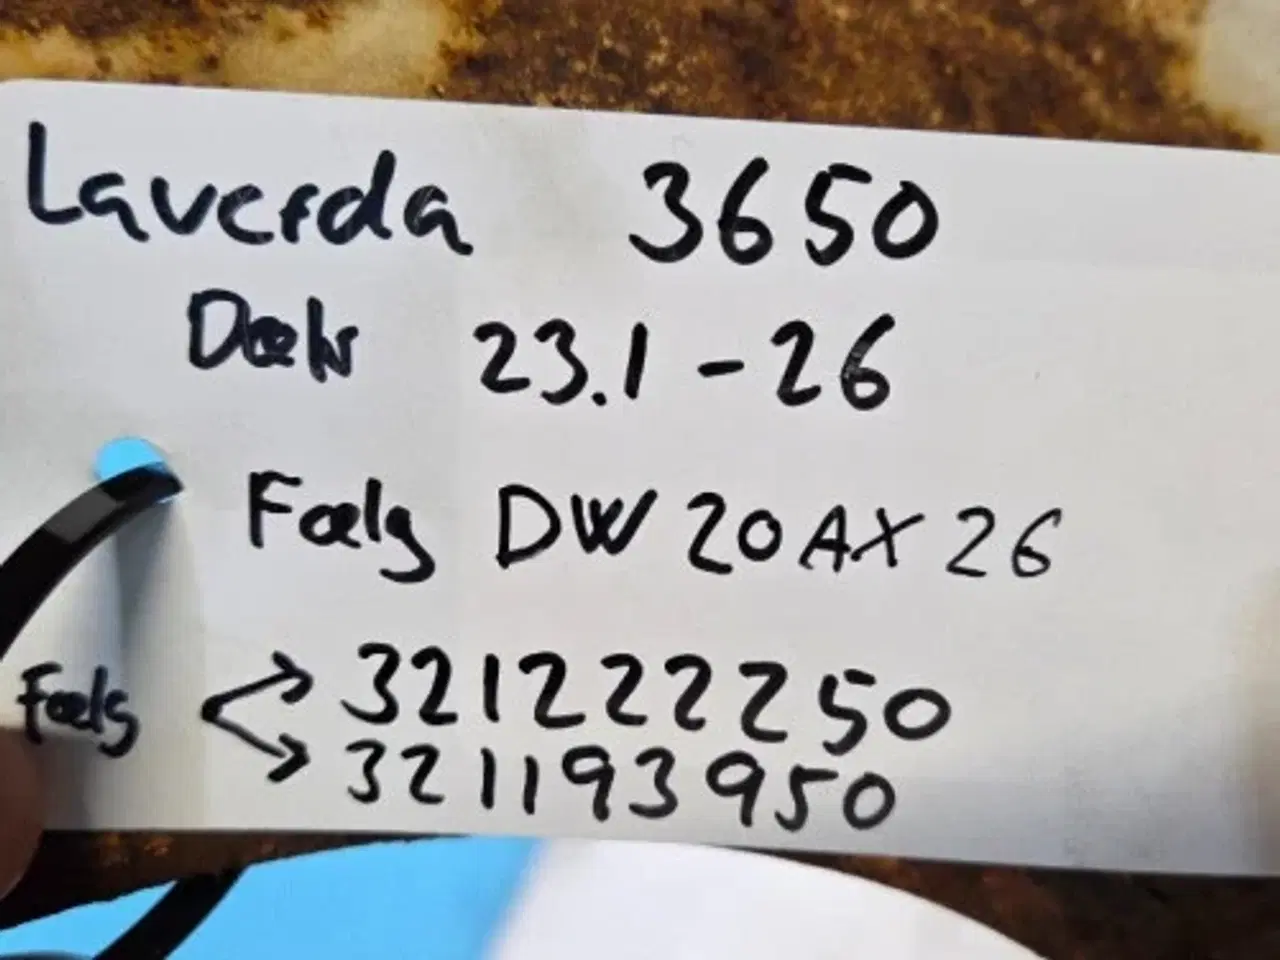 Laverda 3650
Dæk 23.1-26
Fælg DW 20AX26
Fælg 321222250
321193950